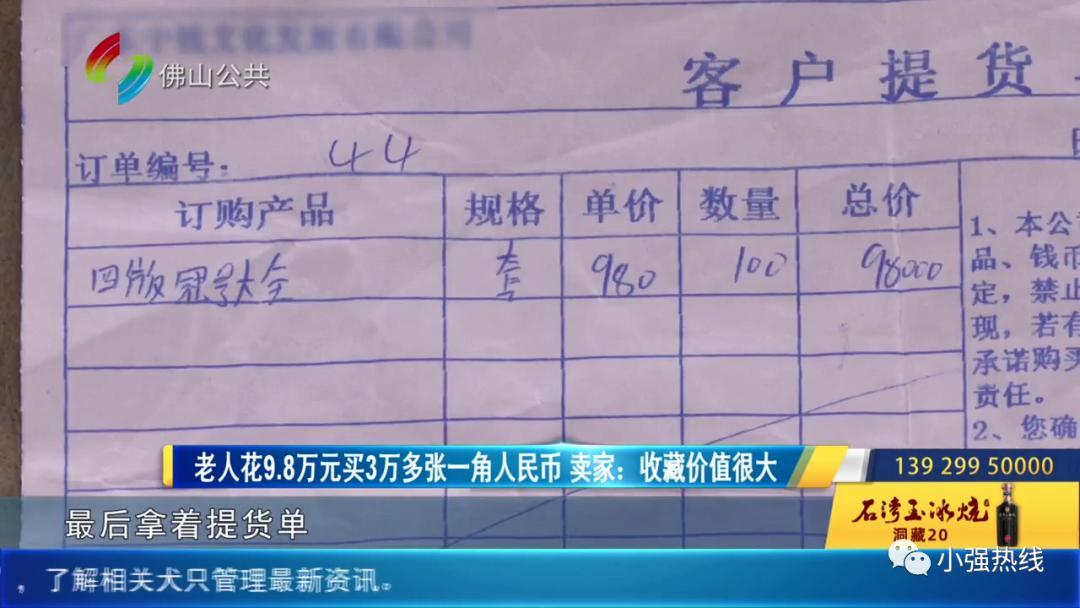 佛山公共
客户提货
订单编号: 44
订购产品 规格 单价 数量 总价
四版冠号大全 套 980 100 98000
1、本公
品、钱币
定，禁止
现，若有
承诺购买
责任。
2、您确
老人花9.8万元买3万多张一角人民币 卖家：收藏价值很大
139 299 50000
最后拿着提货单
石湾玉冰烧
洞藏20
小强热线
，了解相关犬只管理最新资讯。